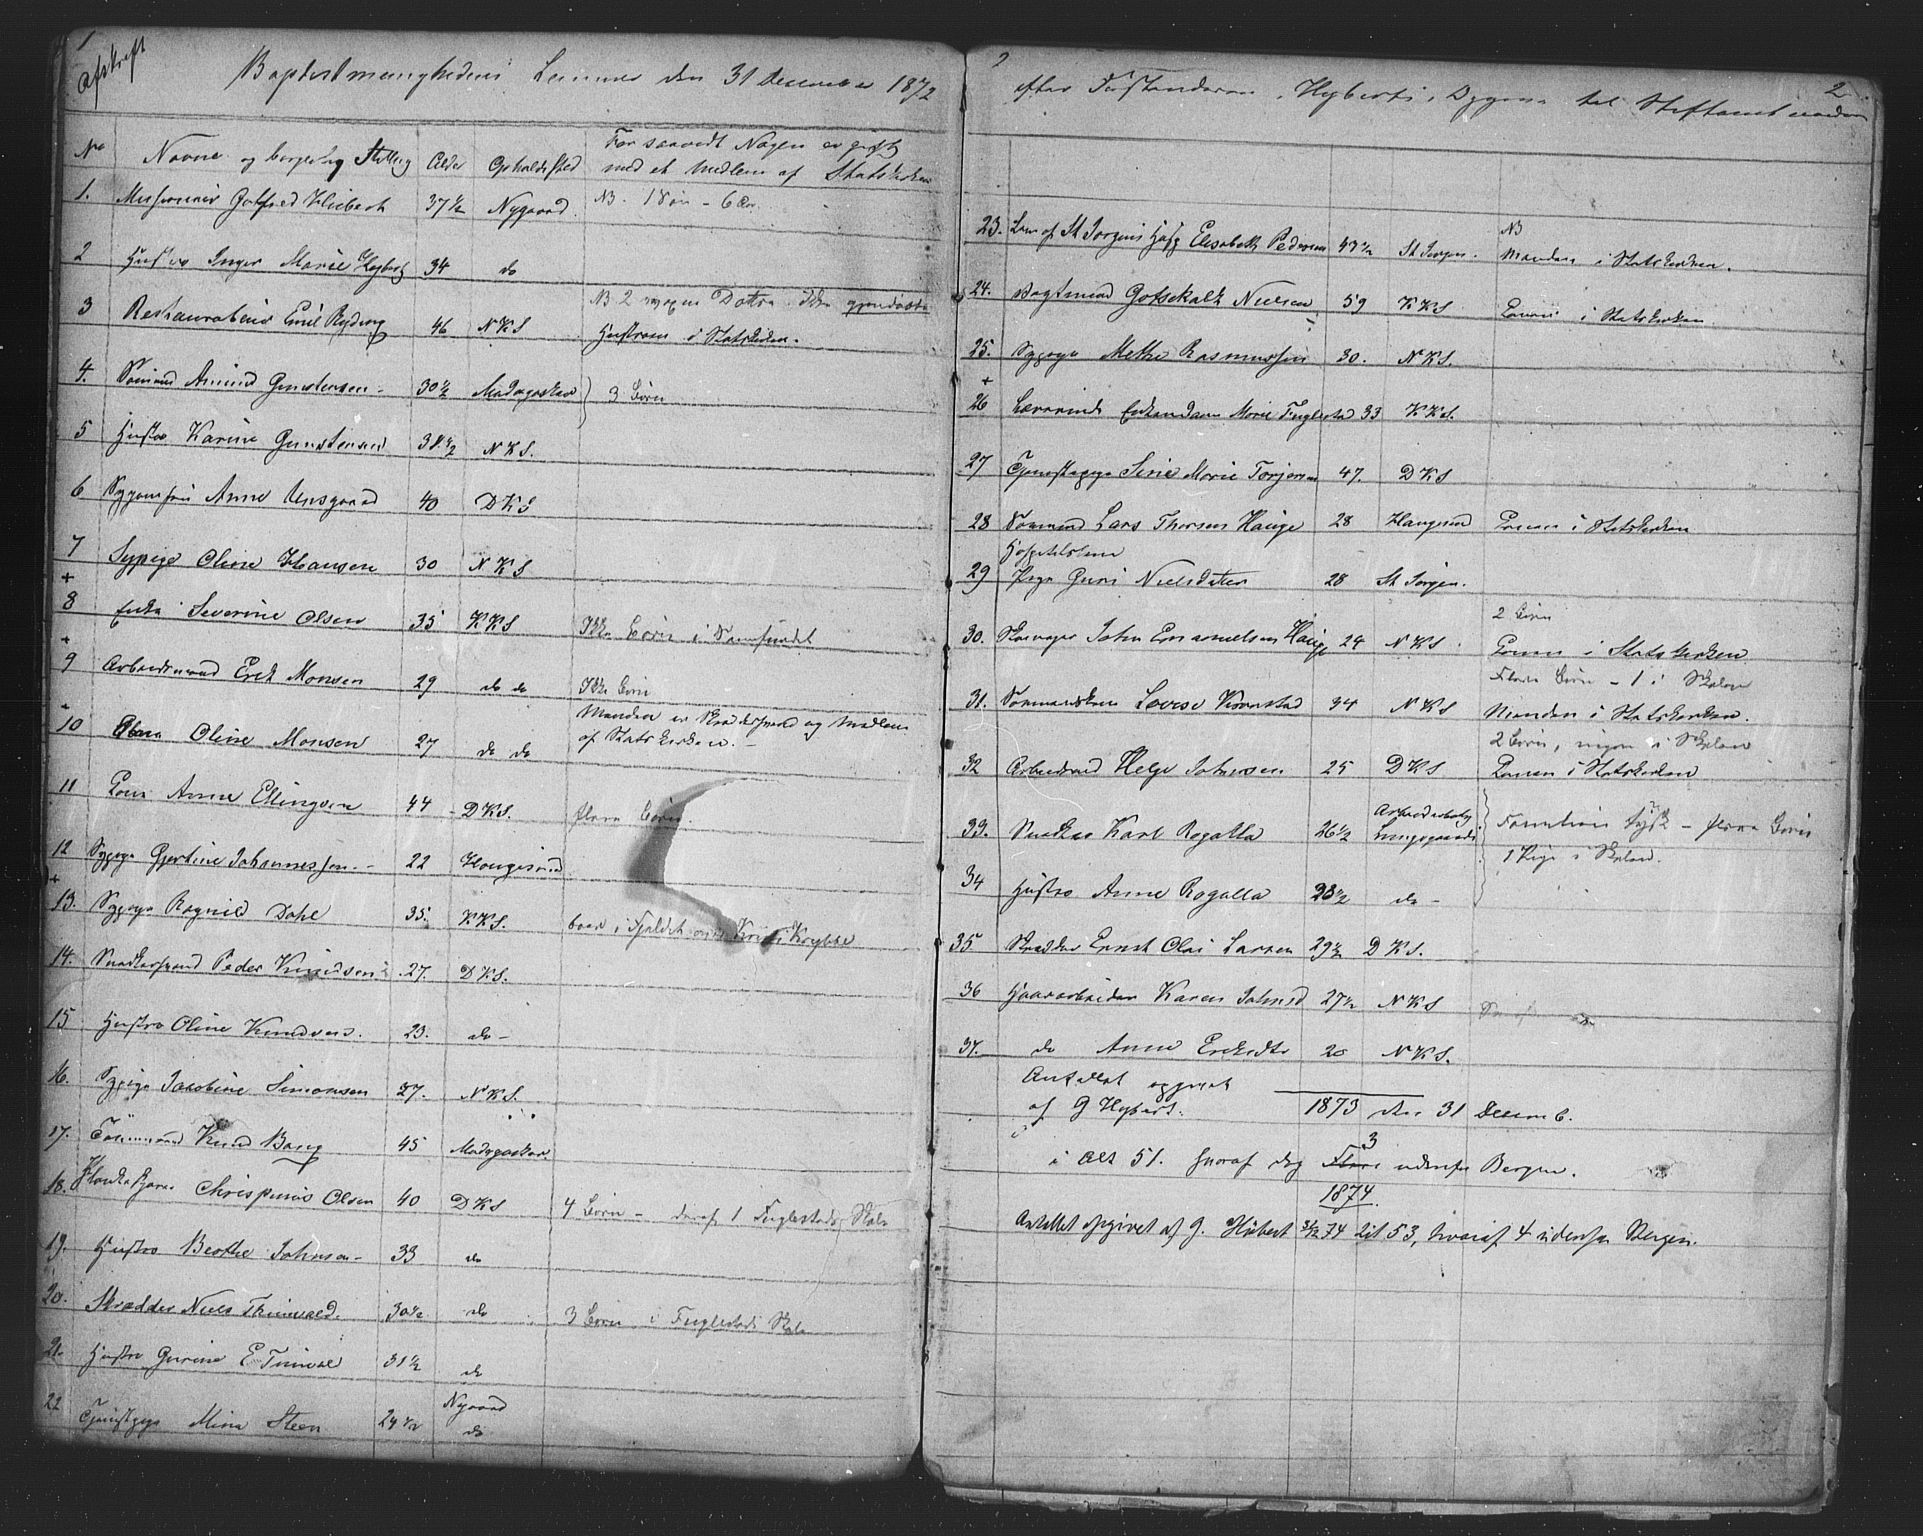 1
Afskrift
Baptistmenighedens Lemmer den 31 December 1872
No Navne og borgerlig Stilling Alder Opholdssted For saavidt Nogen er gift
med et Medlem af Statskirken
1. Missionair Gotfred Hübert 37 1/2 Nygaard. NB. 1 Søn - 6 Aar
2 Hustro Inger Marie Hybert 34 do
3 Restaurateur Emil Ryding 46 NKS NB 2 voxne Døtre ikke gjendøbte
Hustruen i Statskirken.
4. Sømand Amund Gunstensen 30 1/2 Madagaskar 3 Børn
5 Hustro Karine Gunstensen 38 1/2 NKS.
6 Anne Unsgaard 40 DKS
7 Sypige Oline Hansen 30 NKS
+
8 Enke Severine Olsen 35 KKS Ikke Børn i Samfundet
+
9 Arbeidsmand Erik Monsen 29 do do Ikke Børn
10 Oline Monsen 27 do do Manden er Skræddersvend og Medlem
af Statskirken.
11 Kone Anne Ellingsen 44 DKS. flere Børn.
12 Sypige Gjertine Johannessen 22 Haugesund
+
13. Sypige Ragnild Dahl 35. KKS. boer i Fjeldet Krybbe
14. Snedkersvend Peder Knudsen 27. DKS.
15 Hustro Oline Knudsen. 23. do
16. Sypige Jacobine Simonsen 27. NKS.
17. Tømmermand Knud Bang 45 Madagaskar
18. Chrispinus Olsen 40 DKS 4 Børn - deraf 1 Fuglestads Skole
19. Hustro Berthe Johnsen 33 do
20. Skrædder Niels Thunvald. 30 1/2 do 3 Børn i Fuglestads Skole
21. Hustro Gurine E Tunvald 31 1/2 do
22 Tjenestepige Mina Steen 24 1/2 Nygaard
do
2
efter Forstanderen Hyberts Opgave til Stiftamtmanden
23. Lem af St Jørgens Hosp Elisabeth Pedersen 47 1/2 St Jørgen. NB
Manden i Statskirken.
24. Vagtmand Gotskalk Nielsen 59 KKS Konen i Statskirken.
25. Sypige Methe Rasmussen 30. NKS.
+
26 Lærerinde Enkemadam Marie Fuglestad 33 KKS.
27 Tjenestepige Serine Marie Torjersen 47. DKS
28 Sømand Lars Thorsen Hauge 28 Haugesund Konen i Statskirken
Hospitalslem
29 Pige Guri Nielsdatter 28 St Jørgen.
2 Børn
30. Skomager John Emanuelsen Hauge 24 NKS Konen i Statskirken
Flere Børn - 1 i Skolen
31. Sømandskone Lovise Kornstad 34 NKS Manden i Statskirken.
2 Børn, ingen i Skolen
32 Arbeidsmand Helge Johnsen 25 DKS Konen i Statskirken
33. Snedker Karl Rogalla 36 1/2 Arbeiderbolig
Lungegaarden Familien tysk - flere Børn
1 Pige i Skolen.
34 Hustro Anne Rogalla 38 1/2 do
35 Skrædder Ernst Olai Larsen 29 1/2 DKS.
36 Haararbeider Karen Johnsd 27 1/2 NKS
37. do Anne Eriksdtr 20 NKS.
Antallet opgivet
af G Hybert. 1873 den 31 Decemb.
3
i Alt 51. hvoraf dog Flere udenfor Bergen.
1874.
Antallet opgivet af G. Hübert 31/12 74 til 53, hvoraf 4 udenfor Bergen.